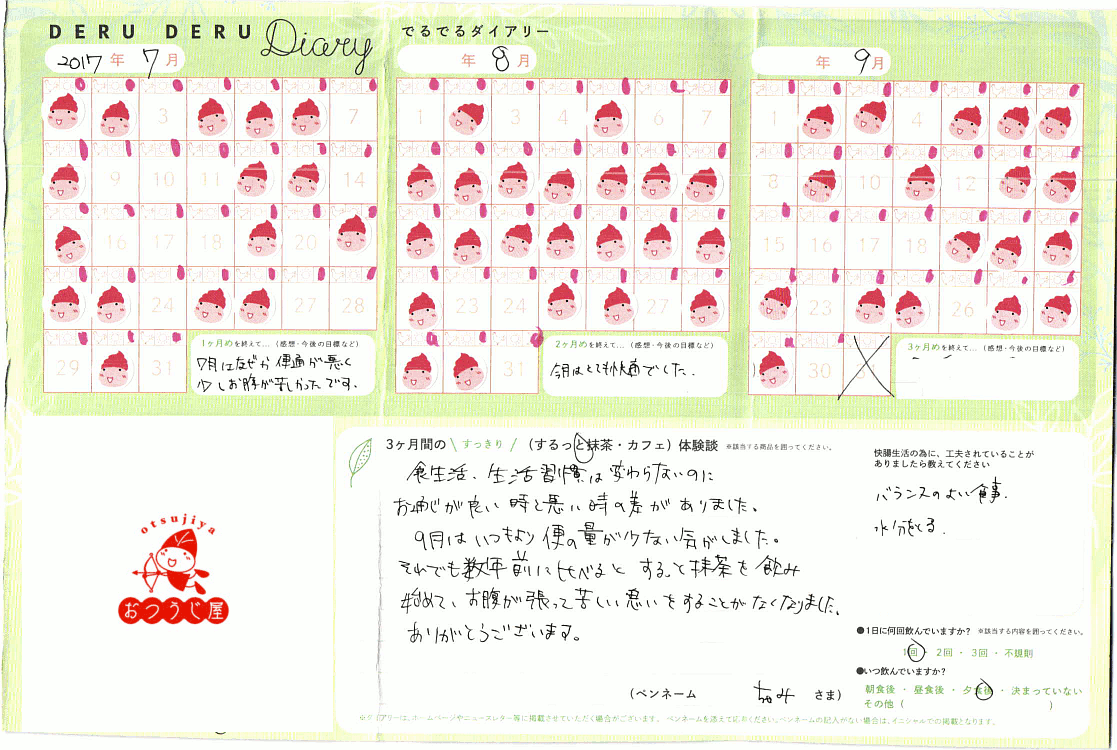 DERU DERU Diary でるでるダイアリー
2017年 7月
3 7
9 10 11 14
16 17 18 20
24 27 28
29 31
1ヶ月めを終えて… (感想・今後の目標など)
7月はなぜか便通が悪く
少しお腹が苦しかったです。
年 8月
1 3 4 6 7
23 24 28
31
2ヶ月めを終えて… (感想・今後の目標など)
今月はとても快適でした。
年 9月
1 4
8 10 12
15 16 17 18
23 26
30
3ヶ月めを終えて… (感想・今後の目標など)
otsujiya
おつうじ屋
3ヶ月間の \ すっきり / (するっと抹茶・カフェ) 体験談 ※該当する商品を囲ってください。
食生活、生活習慣は変わらないのに
お通じが良い時と悪い時の差がありました。
9月はいつもより便の量が少ない気がしました。
それでも数年前に比べると するっと抹茶を飲み
始めて、お腹が張って苦しい思いをすることがなくなりました。
ありがとうございます。
(ペンネーム ちゅみ さま)
快腸生活の為に、工夫されていることが
ありましたら教えてください
バランスのよい食事.
水分をとる.
●1日に何回飲んでいますか? ※該当する内容を囲ってください。
1回・2回・3回・不規則
●いつ飲んでいますか?
朝食後・昼食後・夕食後・決まっていない
その他( )
※ダイアリーは、ホームページやニュースレター等に掲載させていただく場合がございます。 ペンネームを添えて応募ください。ペンネームの記入がない場合は、イニシャルでの掲載となります。